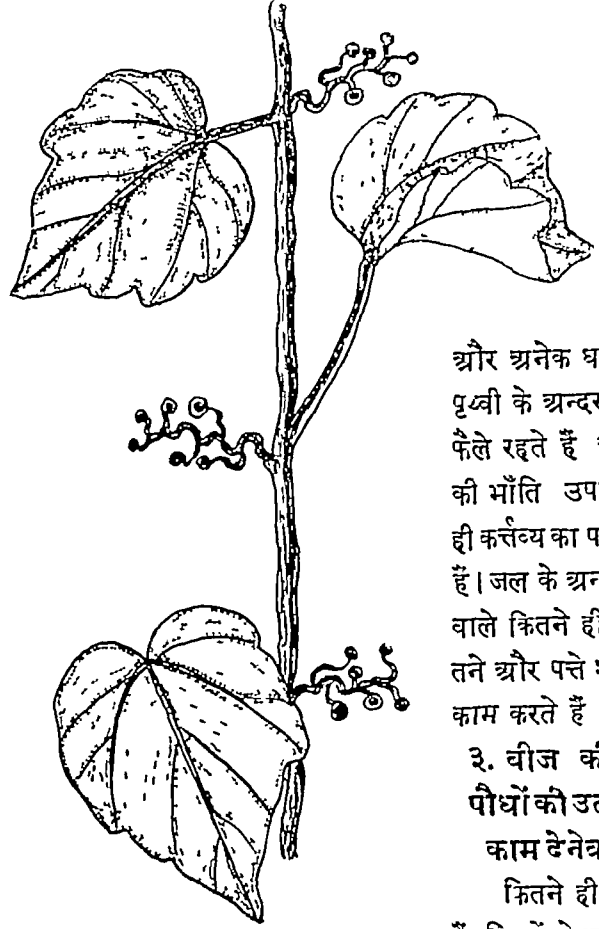 और अनेक ध
पृथ्वी के अन्दर
फैले रहते हैं
की भाँति उप
ही कर्त्तव्य का प
हैं। जल के अन
वाले कितने ही
तने और पत्ते
काम करते हैं
३. बीज की
पौधों की उत
काम देनेव
कितने ही